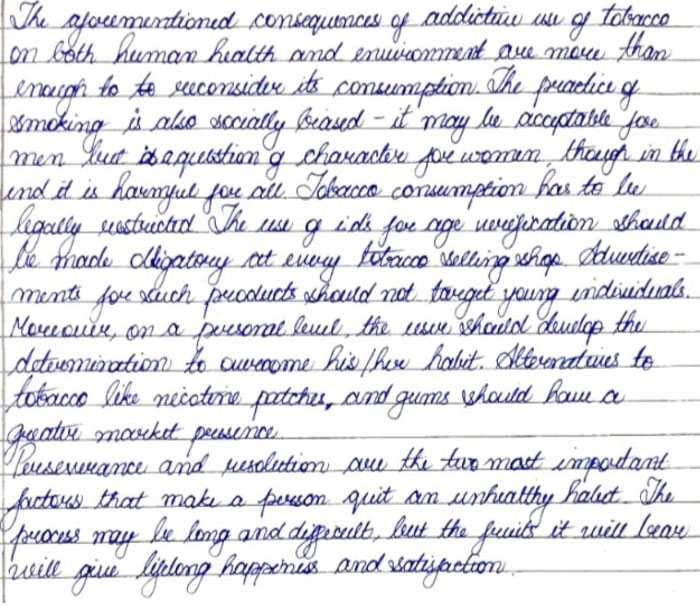 The aforementioned consequences of addictive use of tobacco
on both human health and environment are more than
enough to to reconsider its consumption. The practice of
smoking is also socially biased - it may be acceptable for
men but is a question of character for women, though in the
end it is harmful for all. Tobacco consumption has to be
legally restricted. The use of id's for age verification should
be made obligatory at every tobacco selling shop. Advertise-
ments for such products should not target young individuals.
Moreover, on a personal level, the user should develop the
determination to overcome his/her habit. Alternatives to
tobacco like nicotine patches, and gums should have a
greater market presence.
Perseverance and resolution are the two most important
factors that make a person quit an unhealthy habit. The
process may be long and difficult, but the fruits it will bear
will give lifelong happiness and satisfaction.